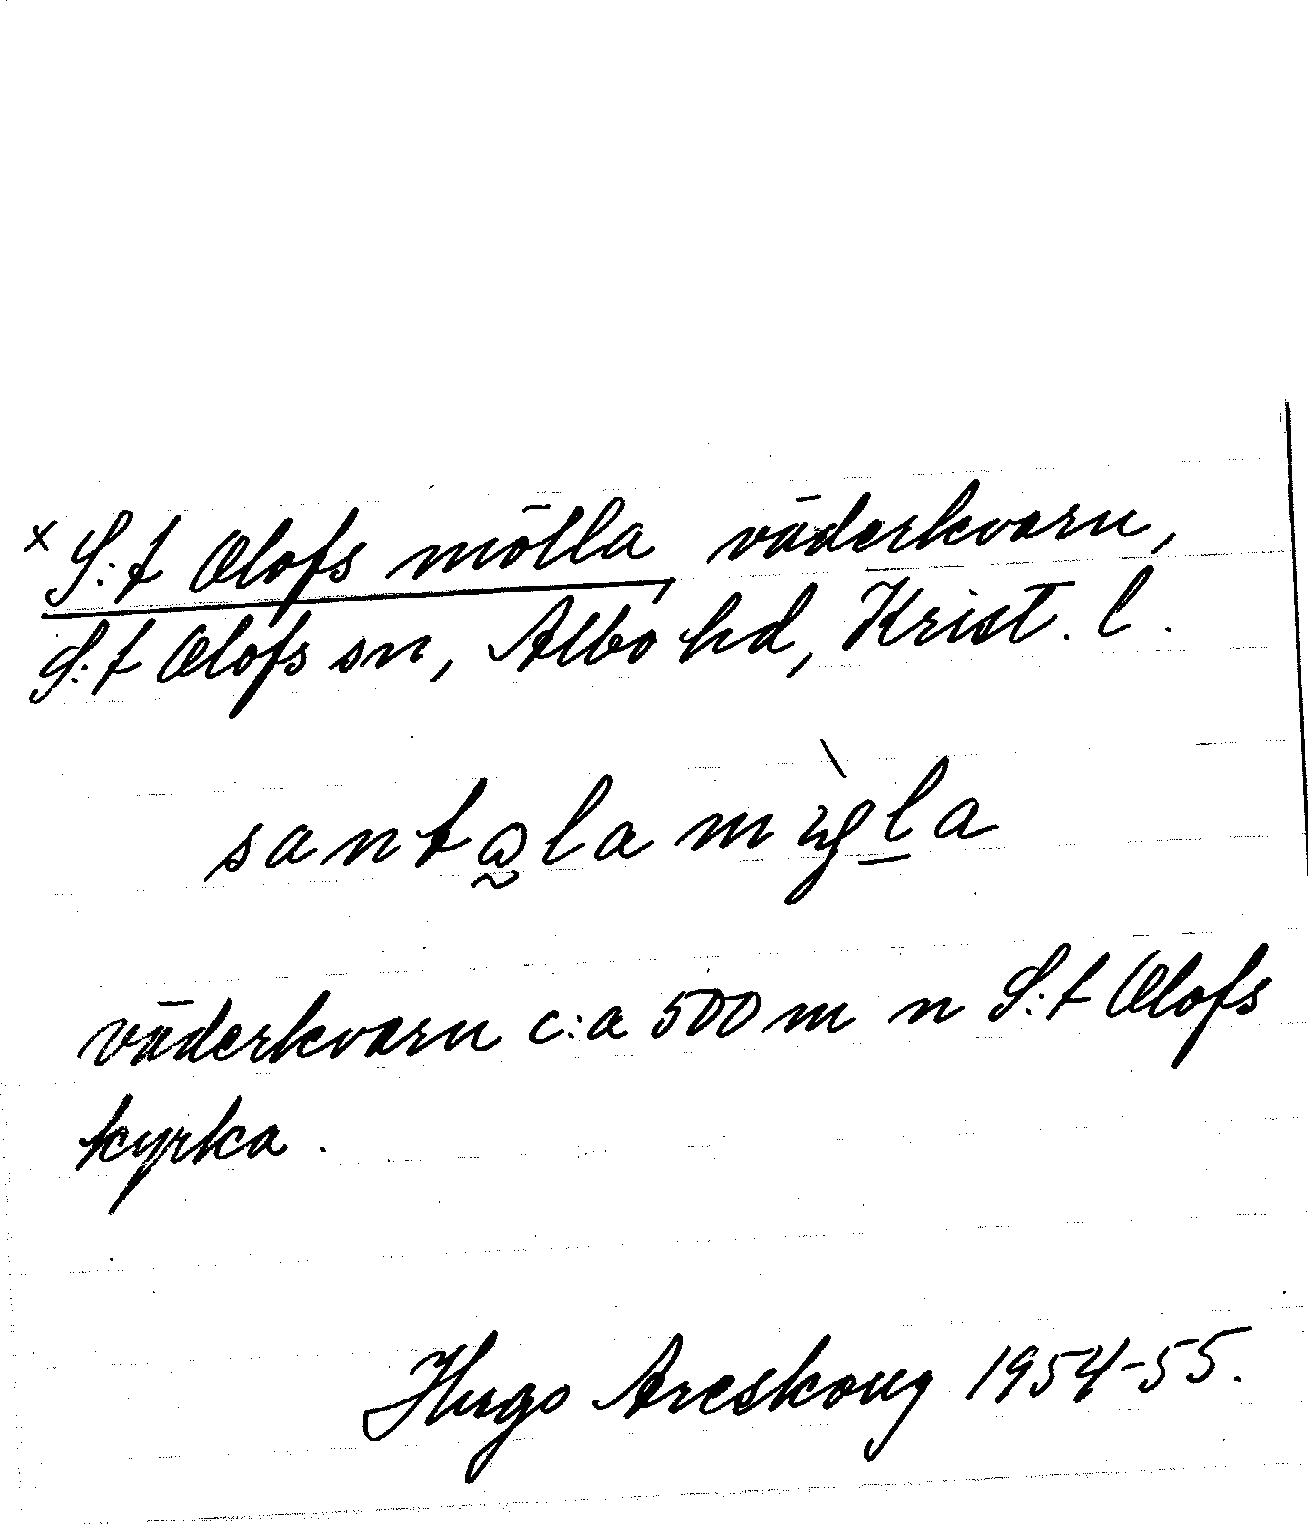 x S:t Olofs mölla väderkvarn,
S:t Olofs sn, Albo hd, Krist. l.
väderkvarn c:a 500 m n S:t Olofs
kyrka.
Hugo Areskoug 1954-55.